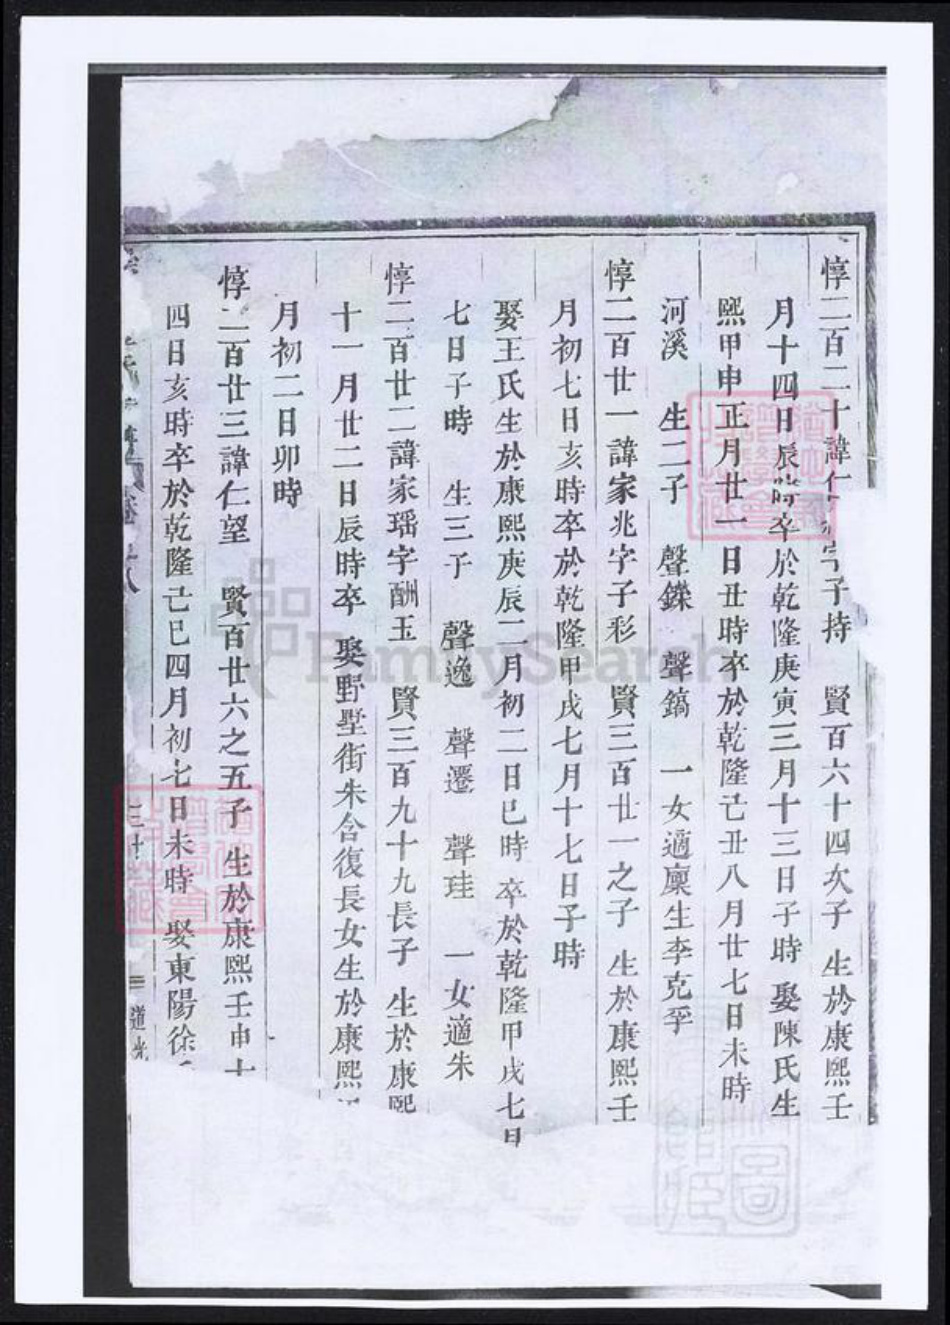 惇二百二十諱仁 字子持 賢百六十四次子 生於康熙壬
月十四日辰時卒於乾隆庚寅三月十三日子時 娶陳氏生
熙甲申正月廿一日丑時卒於乾隆己丑八月廿七日未時
河溪 生二子 聲鑠 聲鎬 一女適廩生李克孚
惇二百廿一諱家兆字子彩 賢三百廿一之子 生於康熙壬
月初七日亥時卒於乾隆甲戌七月十七日子時
娶王氏生於康熙庚辰二月初二日巳時 卒於乾隆甲戌七月
七日子時 生三子 聲逸 聲遷 聲珪 一女適朱
惇二百廿二諱家瑶字酬玉 賢三百九十九長子 生於康熙
十一月廿二日辰時卒 娶野墅街朱含復長女生於康熙
月初二日卯時
惇二百廿三諱仁望 賢百廿六之五子 生於康熙壬申十
四日亥時卒於乾隆己巳四月初七日未時 娶東陽徐
三十 道光
FamilySearch